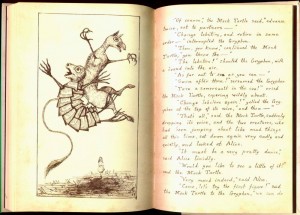 "Of course," the Mock Turtle said, "advance
twice, set to partners —"
"Change lobsters, and retire in same
order —" interrupted the Gryphon.
"Then, you know," continued the Mock
Turtle, "you throw the —"
"The lobsters!" shouted the Gryphon, with
a bound into the air.
"As far out to sea as you can —"
"Swim after them!" screamed the Gryphon.
"Turn a somersault in the sea!" cried
the Mock Turtle, capering wildly about.
"Change lobsters again!" yelled the Gry-
phon at the top of its voice, "and then —"
"That's all," said the Mock Turtle, suddenly
dropping its voice, and the two creatures, who
had been jumping about like mad things
all this time, sat down again very sadly and
quietly, and looked at Alice.
"It must be a very pretty dance,"
said Alice timidly.
"Would you like to see a little of it?"
said the Mock Turtle.
"Very much indeed," said Alice.
"Come, let's try the first figure!" said
the Mock Turtle to the Gryphon, "we can do